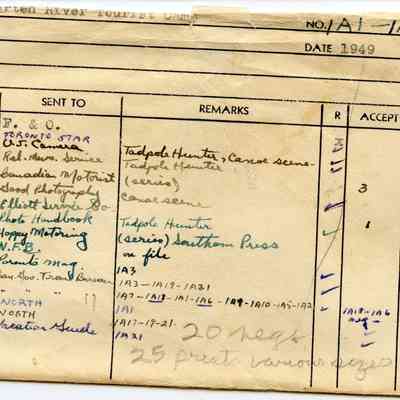 arten River Tourist Camp
NO. 1A1-1A
DATE 1949
SENT TO REMARKS R ACCEPT
F. & O.
TORONTO STAR
U.S. Camera Tadpole Hunter, Canoe scene
Rel. News Service Tadpole Hunter
Canadian Motorist (series) 3
Good Photography canoe scene
Elliott Service Co
Photo Handbook Tadpole Hunter 1
Happy Motoring (series) Southam Press
N.F.B. on file
Parents Mag 1A3
Can. Gov. Travel Bureau 1A3-1A19-1A21
" " " " 1A7-1A18-1A1-1A6-1A9-1A10-1A5-1A2
NORTH 1A1 1A18-1A6
NORTH 1A17-19-21. neg
Vacation Guide 1A21
20 negs
25 prints various sizes